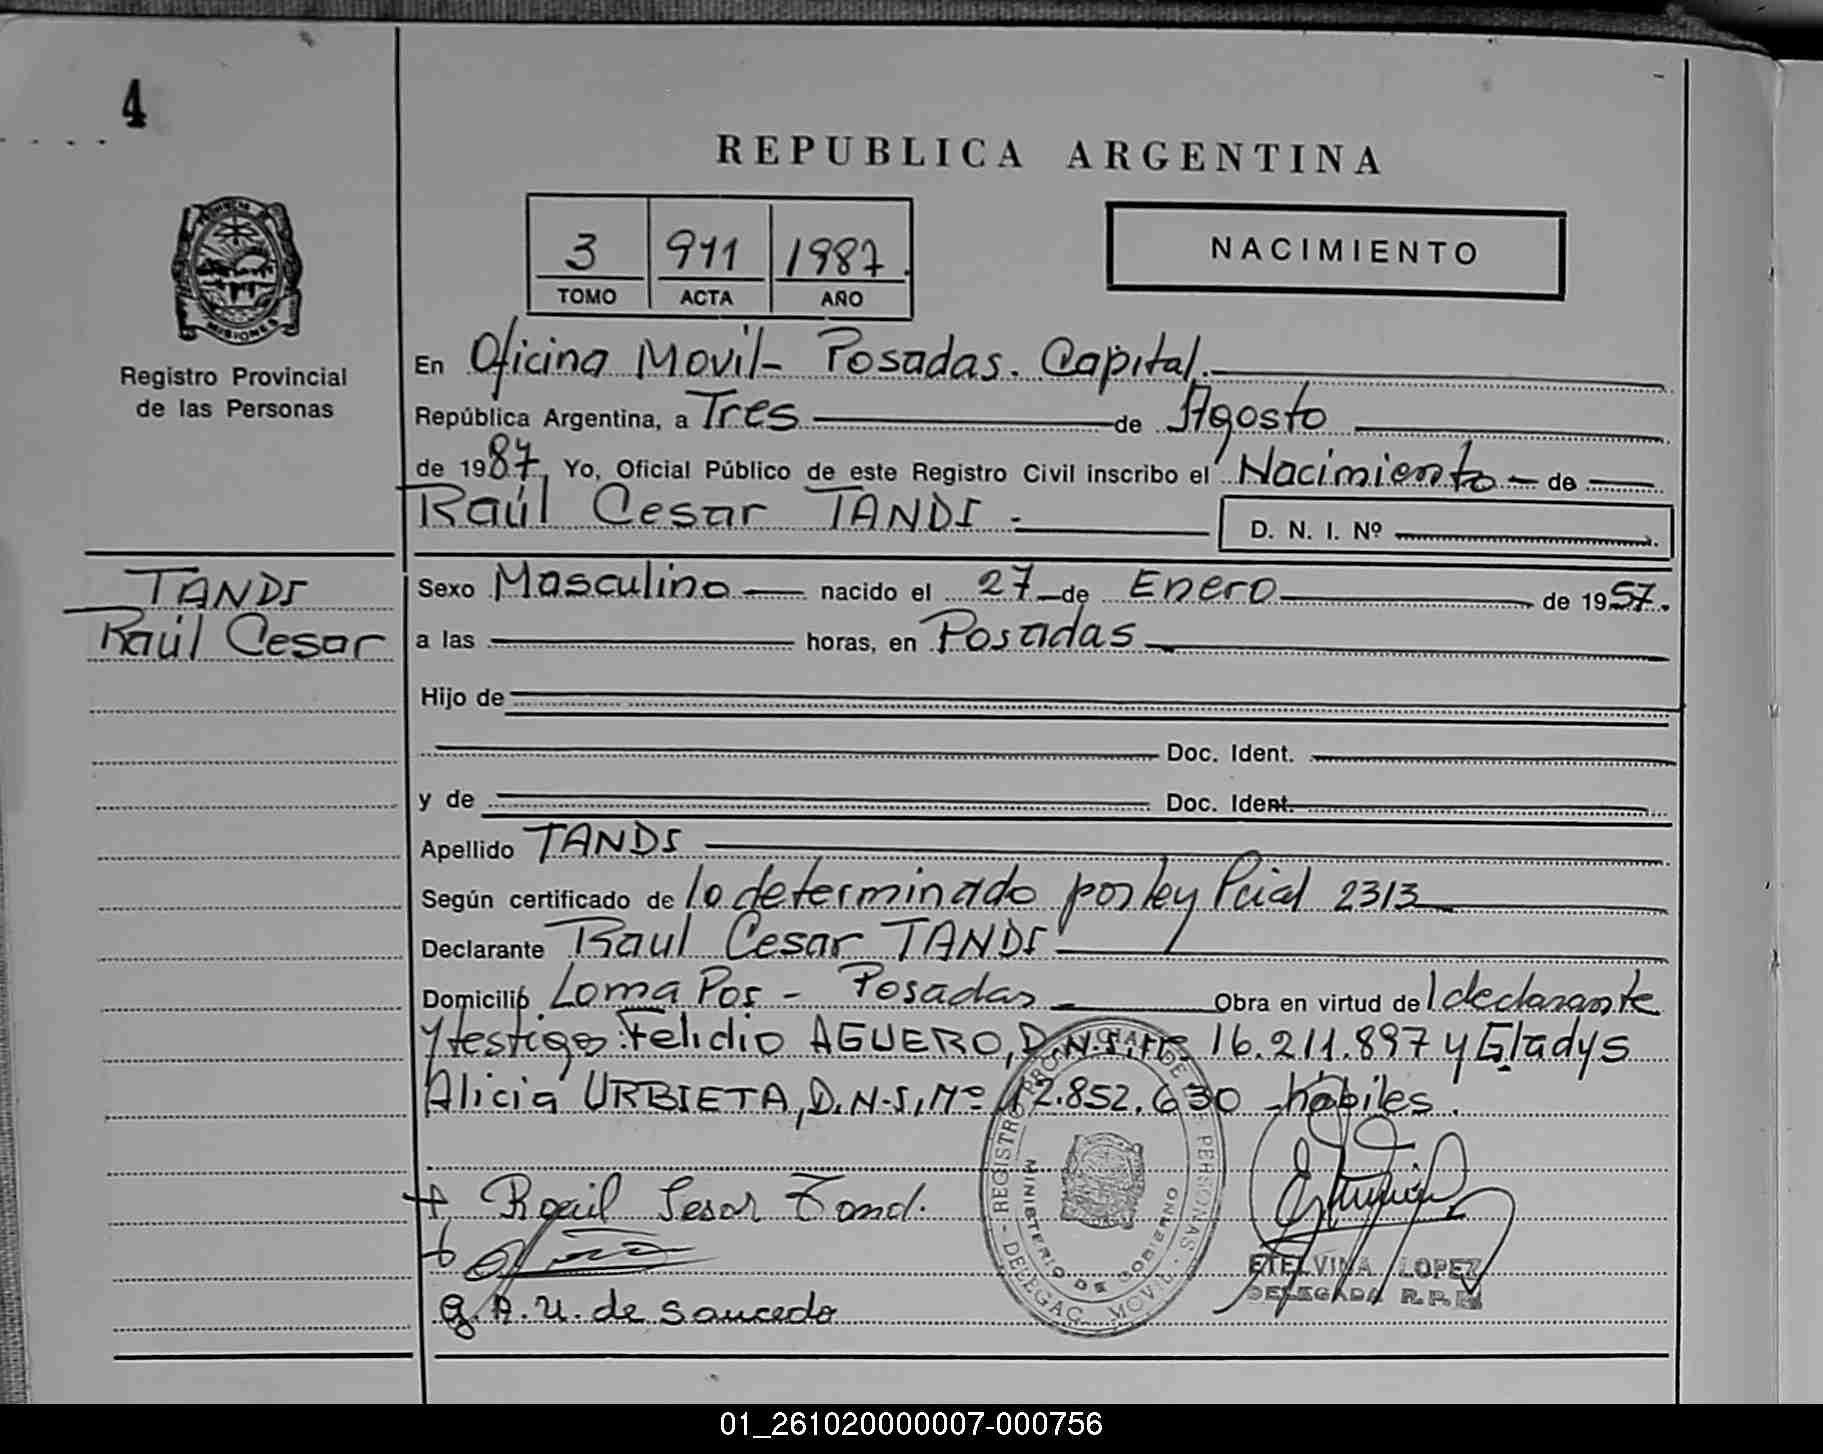 4
REPUBLICA ARGENTINA
3 911 1987
TOMO ACTA AÑO
NACIMIENTO
PROVINCIA DE MISIONES
Registro Provincial
de las Personas
En Oficina Movil - Posadas. Capital.
República Argentina, a Tres de Agosto
de 1987, Yo, Oficial Público de este Registro Civil inscribo el Nacimiento de
Raúl Cesar TANDI.
D. N. I. Nº
TANDI
Raúl Cesar
Sexo Masculino nacido el 27 de Enero de 1957.
a las horas, en Posadas
Hijo de
Doc. Ident.
y de Doc. Ident.
Apellido TANDI
Según certificado de lo determinado por ley Pcial 2313
Declarante Raul Cesar TANDI
Domicilio Loma Poi - Posadas Obra en virtud de l declarante
y testigos: Felidio AGUERO, D.N.I. Nº 16.211.897 y Gladys
Alicia URBIETA, D.N.I, Nº 12.852.630 - hábiles.
REGISTRO PROVINCIAL DE LAS PERSONAS - DELEGAC. MOVIL -
MINISTERIO DE GOBIERNO
+ Raúl Sesar Tand.
G. A. U. de Saucedo
ETELVINA LOPEZ
DELEGADA R.P.P.
01_261020000007-000756